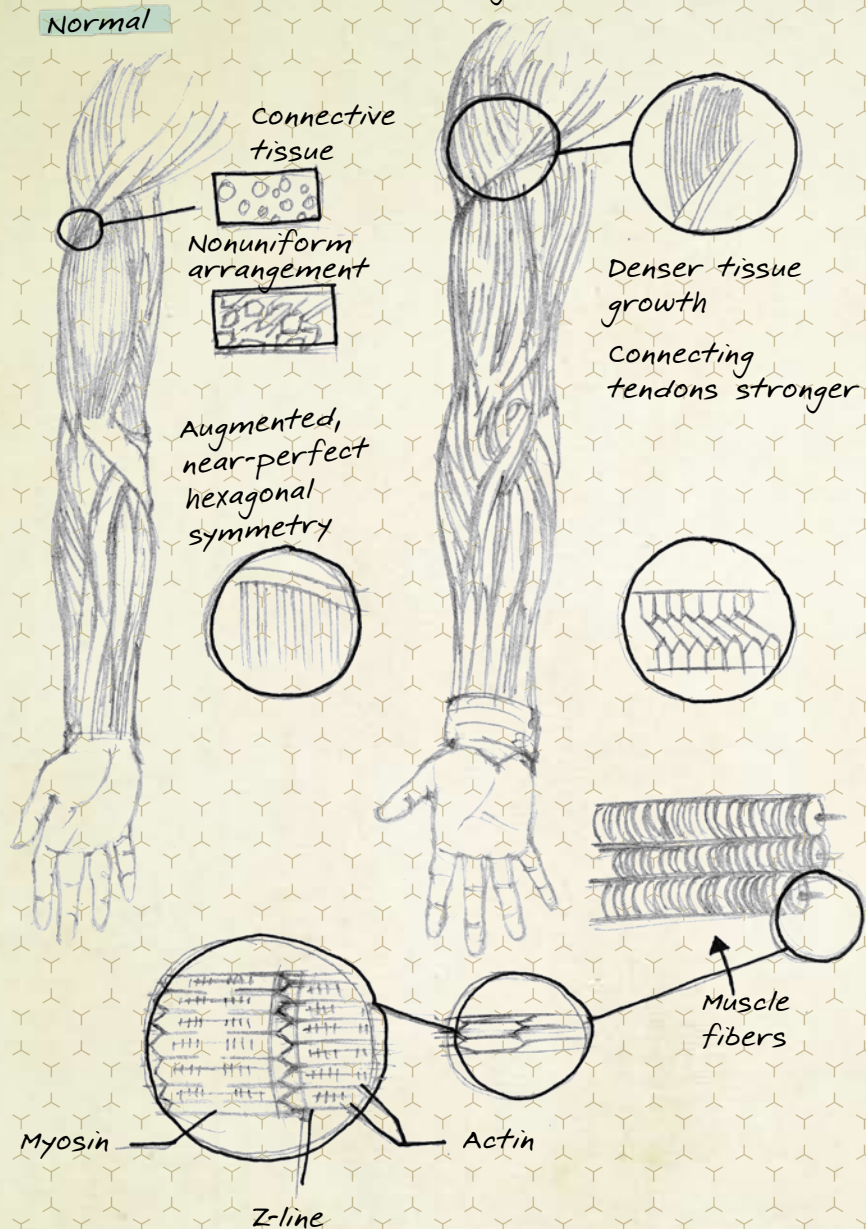 Normal
Connective
tissue
Nonuniform
arrangement
Augmented,
near-perfect
hexagonal
symmetry
Denser tissue
growth
Connecting
tendons stronger
Muscle
fibers
Myosin
Actin
Z-line